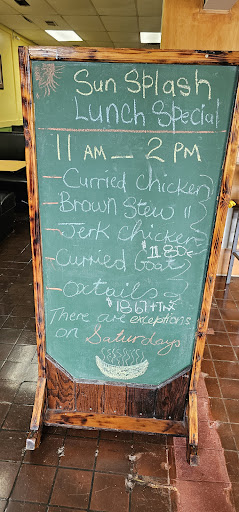 Sun Splash
Lunch Special
11 AM - 2 PM
- Curried Chicken
- Brown Stew "
- Jerk chicken
- Curried Goat
- Oxtails
$18.67+Tax
There are exceptions
on Saturdays